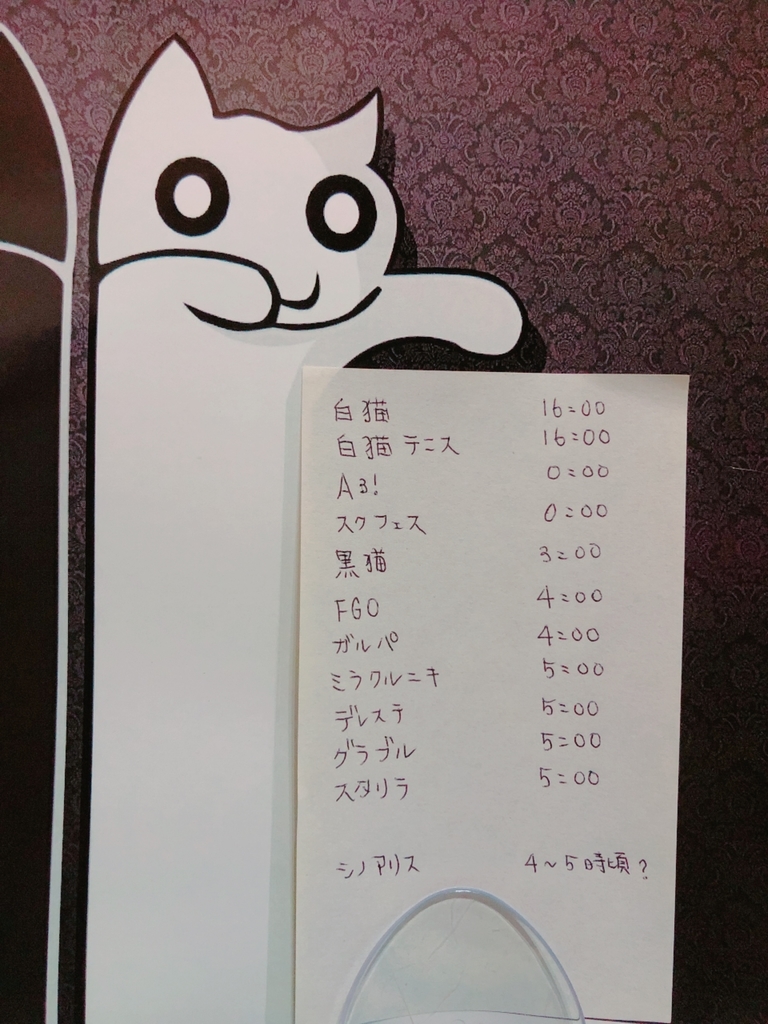 白猫 16:00
白猫テニス 16:00
A3! 0:00
スクフェス 0:00
黒猫 3:00
FGO 4:00
ガルパ 4:00
ミラクルニキ 5:00
デレステ 5:00
グラブル 5:00
スタリラ 5:00
シノアリス 4~5時頃?